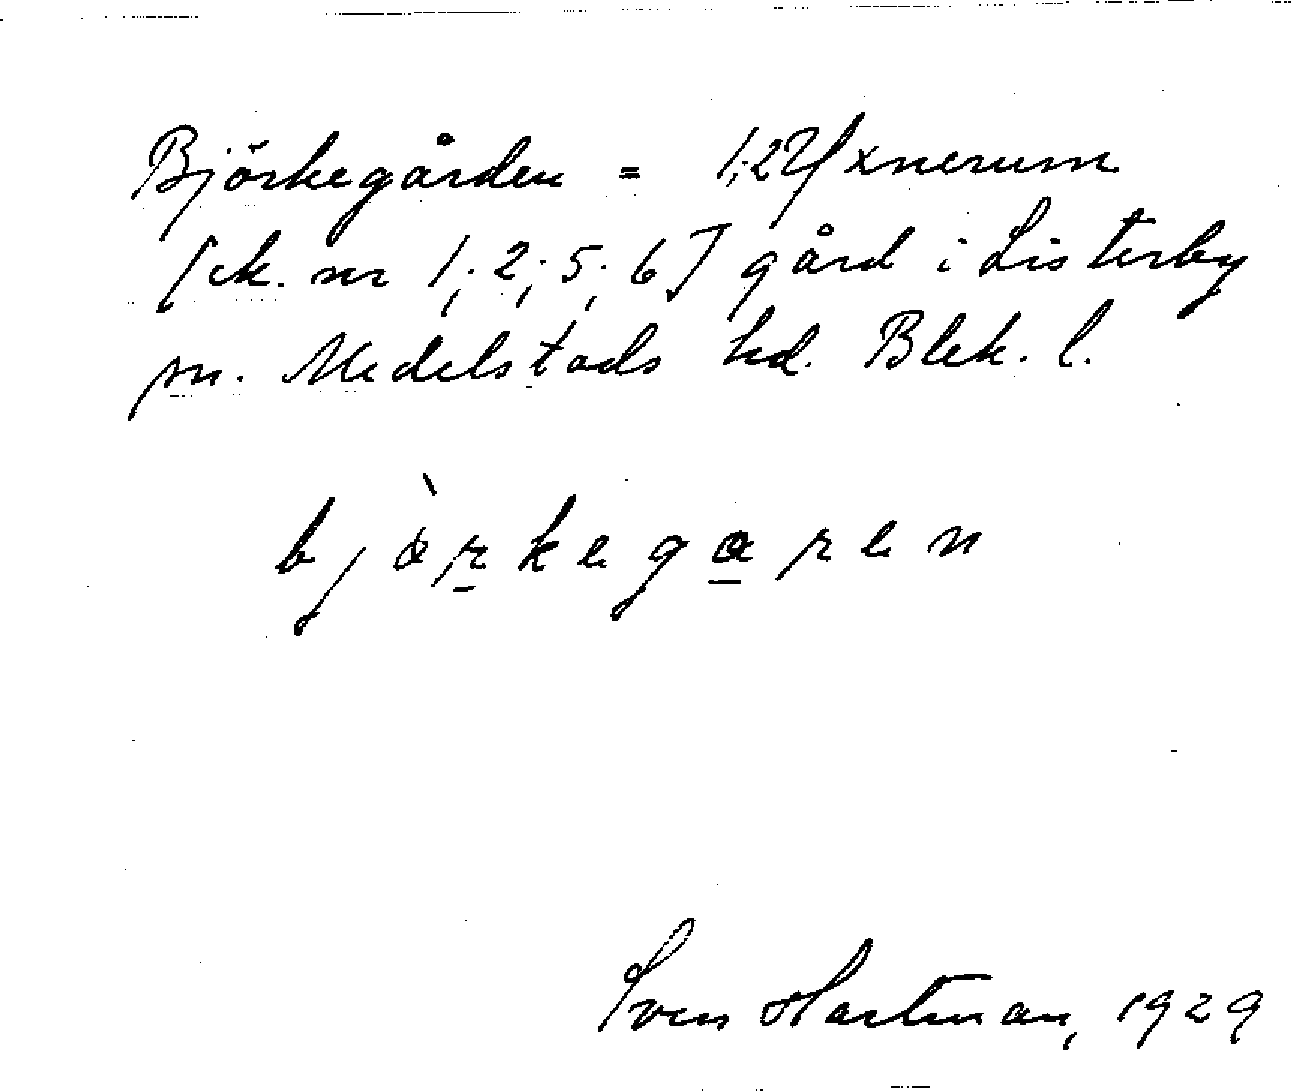 Björkegården = 1;2 Yxnerum
[ek. nr 1; 2; 5; 6] gård i Listerby
sn. Medelstads hd. Blek. l.
bjœ̀r̲kega̲ren
Sven Hartman, 1929